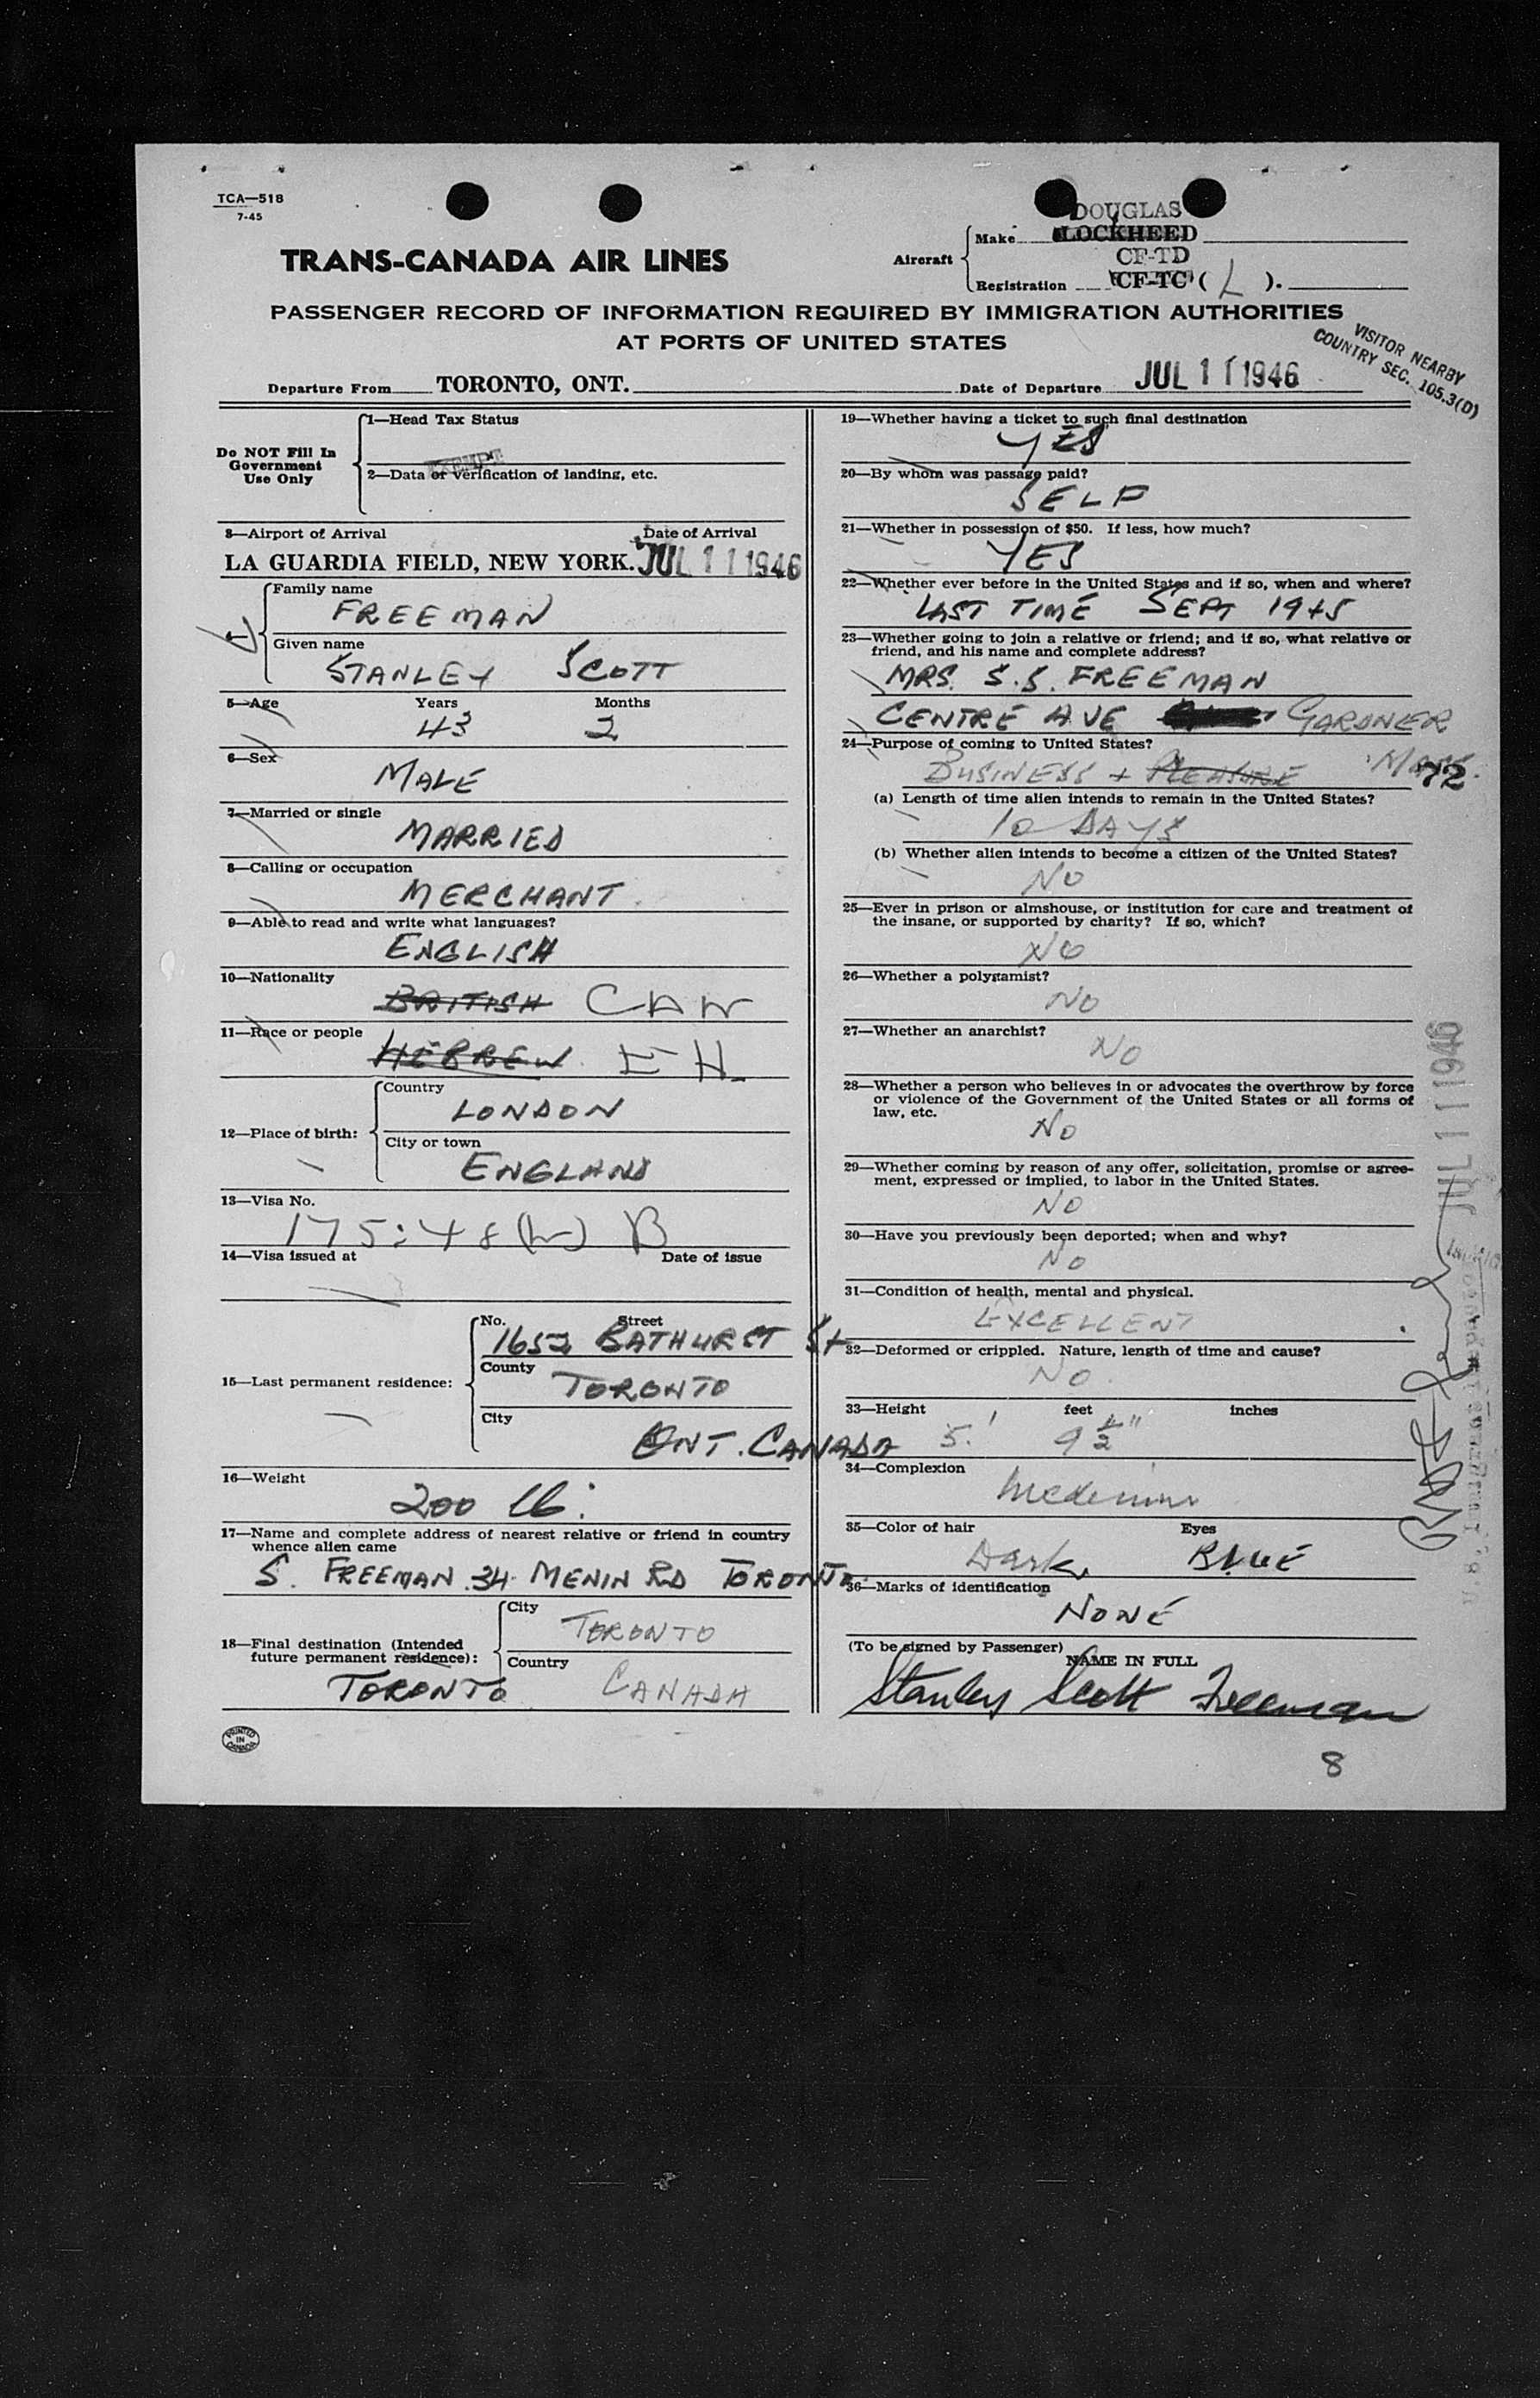 TCA—518
7-45
TRANS-CANADA AIR LINES
DOUGLAS
Aircraft Make LOCKHEED
CF-TD
Registration CF-TC ( L ).
PASSENGER RECORD OF INFORMATION REQUIRED BY IMMIGRATION AUTHORITIES
AT PORTS OF UNITED STATES
VISITOR NEARBY
COUNTRY SEC. 105.3(D)
Departure From TORONTO, ONT. Date of Departure JUL 11 1946
Do NOT Fill In
Government
Use Only
1—Head Tax Status
EXEMPT
2—Data or verification of landing, etc.
3—Airport of Arrival Date of Arrival
LA GUARDIA FIELD, NEW YORK. JUL 11 1946
Family name
FREEMAN
Given name
STANLEY SCOTT
5—Age Years Months
43 2
6—Sex
MALE
7—Married or single
MARRIED
8—Calling or occupation
MERCHANT
9—Able to read and write what languages?
ENGLISH
10—Nationality
BRITISH CAN
11—Race or people
HEBREW
12—Place of birth:
Country
LONDON
City or town
ENGLAND
13—Visa No.
14—Visa issued at Date of issue
15—Last permanent residence:
No. Street
1652 BATHURST St
County
TORONTO
City
ONT. CANADA
16—Weight
200 lb.
17—Name and complete address of nearest relative or friend in country
whence alien came
S. FREEMAN 34 MENIN RD TORONTO
18—Final destination (Intended
future permanent residence):
City
TORONTO
Country
TORONTO CANADA
PRINTED
IN
CANADA
19—Whether having a ticket to such final destination
YES
20—By whom was passage paid?
SELF
21—Whether in possession of $50. If less, how much?
YES
22—Whether ever before in the United States and if so, when and where?
LAST TIME SEPT 1945
23—Whether going to join a relative or friend; and if so, what relative or
friend, and his name and complete address?
MRS. S.S. FREEMAN
CENTRE AVE GARDNER
MASS.
24—Purpose of coming to United States?
BUSINESS + PLEASURE
72
(a) Length of time alien intends to remain in the United States?
10 DAYS
(b) Whether alien intends to become a citizen of the United States?
NO
25—Ever in prison or almshouse, or institution for care and treatment of
the insane, or supported by charity? If so, which?
NO
26—Whether a polygamist?
NO
27—Whether an anarchist?
NO
28—Whether a person who believes in or advocates the overthrow by force
or violence of the Government of the United States or all forms of
law, etc.
NO
29—Whether coming by reason of any offer, solicitation, promise or agree-
ment, expressed or implied, to labor in the United States.
NO
30—Have you previously been deported; when and why?
NO
31—Condition of health, mental and physical.
EXCELLENT
32—Deformed or crippled. Nature, length of time and cause?
NO
33—Height feet inches
5' 9½"
34—Complexion
Medium
35—Color of hair Eyes
Dark BLUE
36—Marks of identification
NONE
(To be signed by Passenger)
NAME IN FULL
Stanley Scott Freeman
8
JUL 11 1946